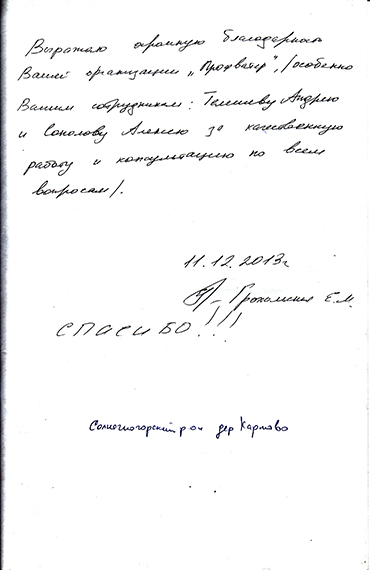 Выражаю огромную благодарность
Вашей организации „Профватер", /особенно
Вашим сотрудникам: Андрею
и Соколову Алексею за качественную
работу и консультацию по всем
вопросам/.
11.12.2013г
Е.М.
СПАСИБО!!!
Солнечногорский р он дер Карпово